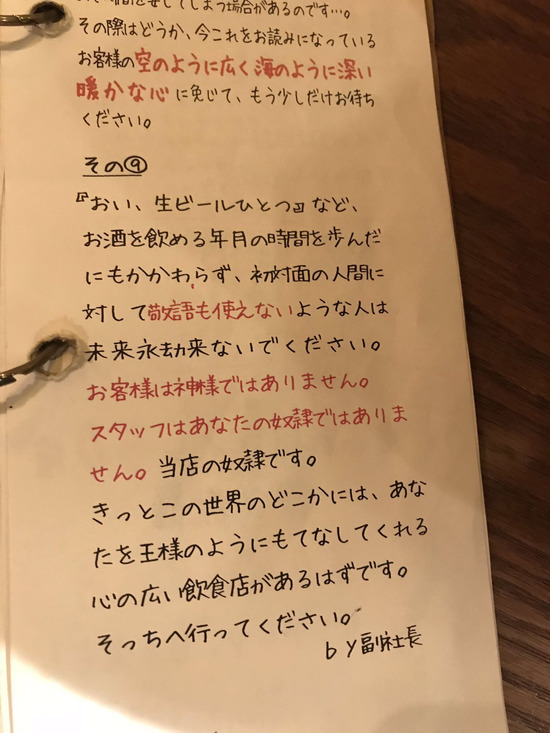 時間を要してしまう場合があるのです…。
その際はどうか、今これをお読みになっている
お客様の空のように広く海のように深い
暖かな心に免じて、もう少しだけお待ち
ください。
その⑨
『おい、生ビールひとつ』など、
お酒を飲める年月の時間を歩んだ
にもかかわらず、初対面の人間に
対して敬語も使えないような人は
未来永劫来ないでください。
お客様は神様ではありません。
スタッフはあなたの奴隷ではありま
せん。当店の奴隷です。
きっとこの世界のどこかには、あな
たを王様のようにもてなしてくれる
心の広い飲食店があるはずです。
そっちへ行ってください。
by副社長